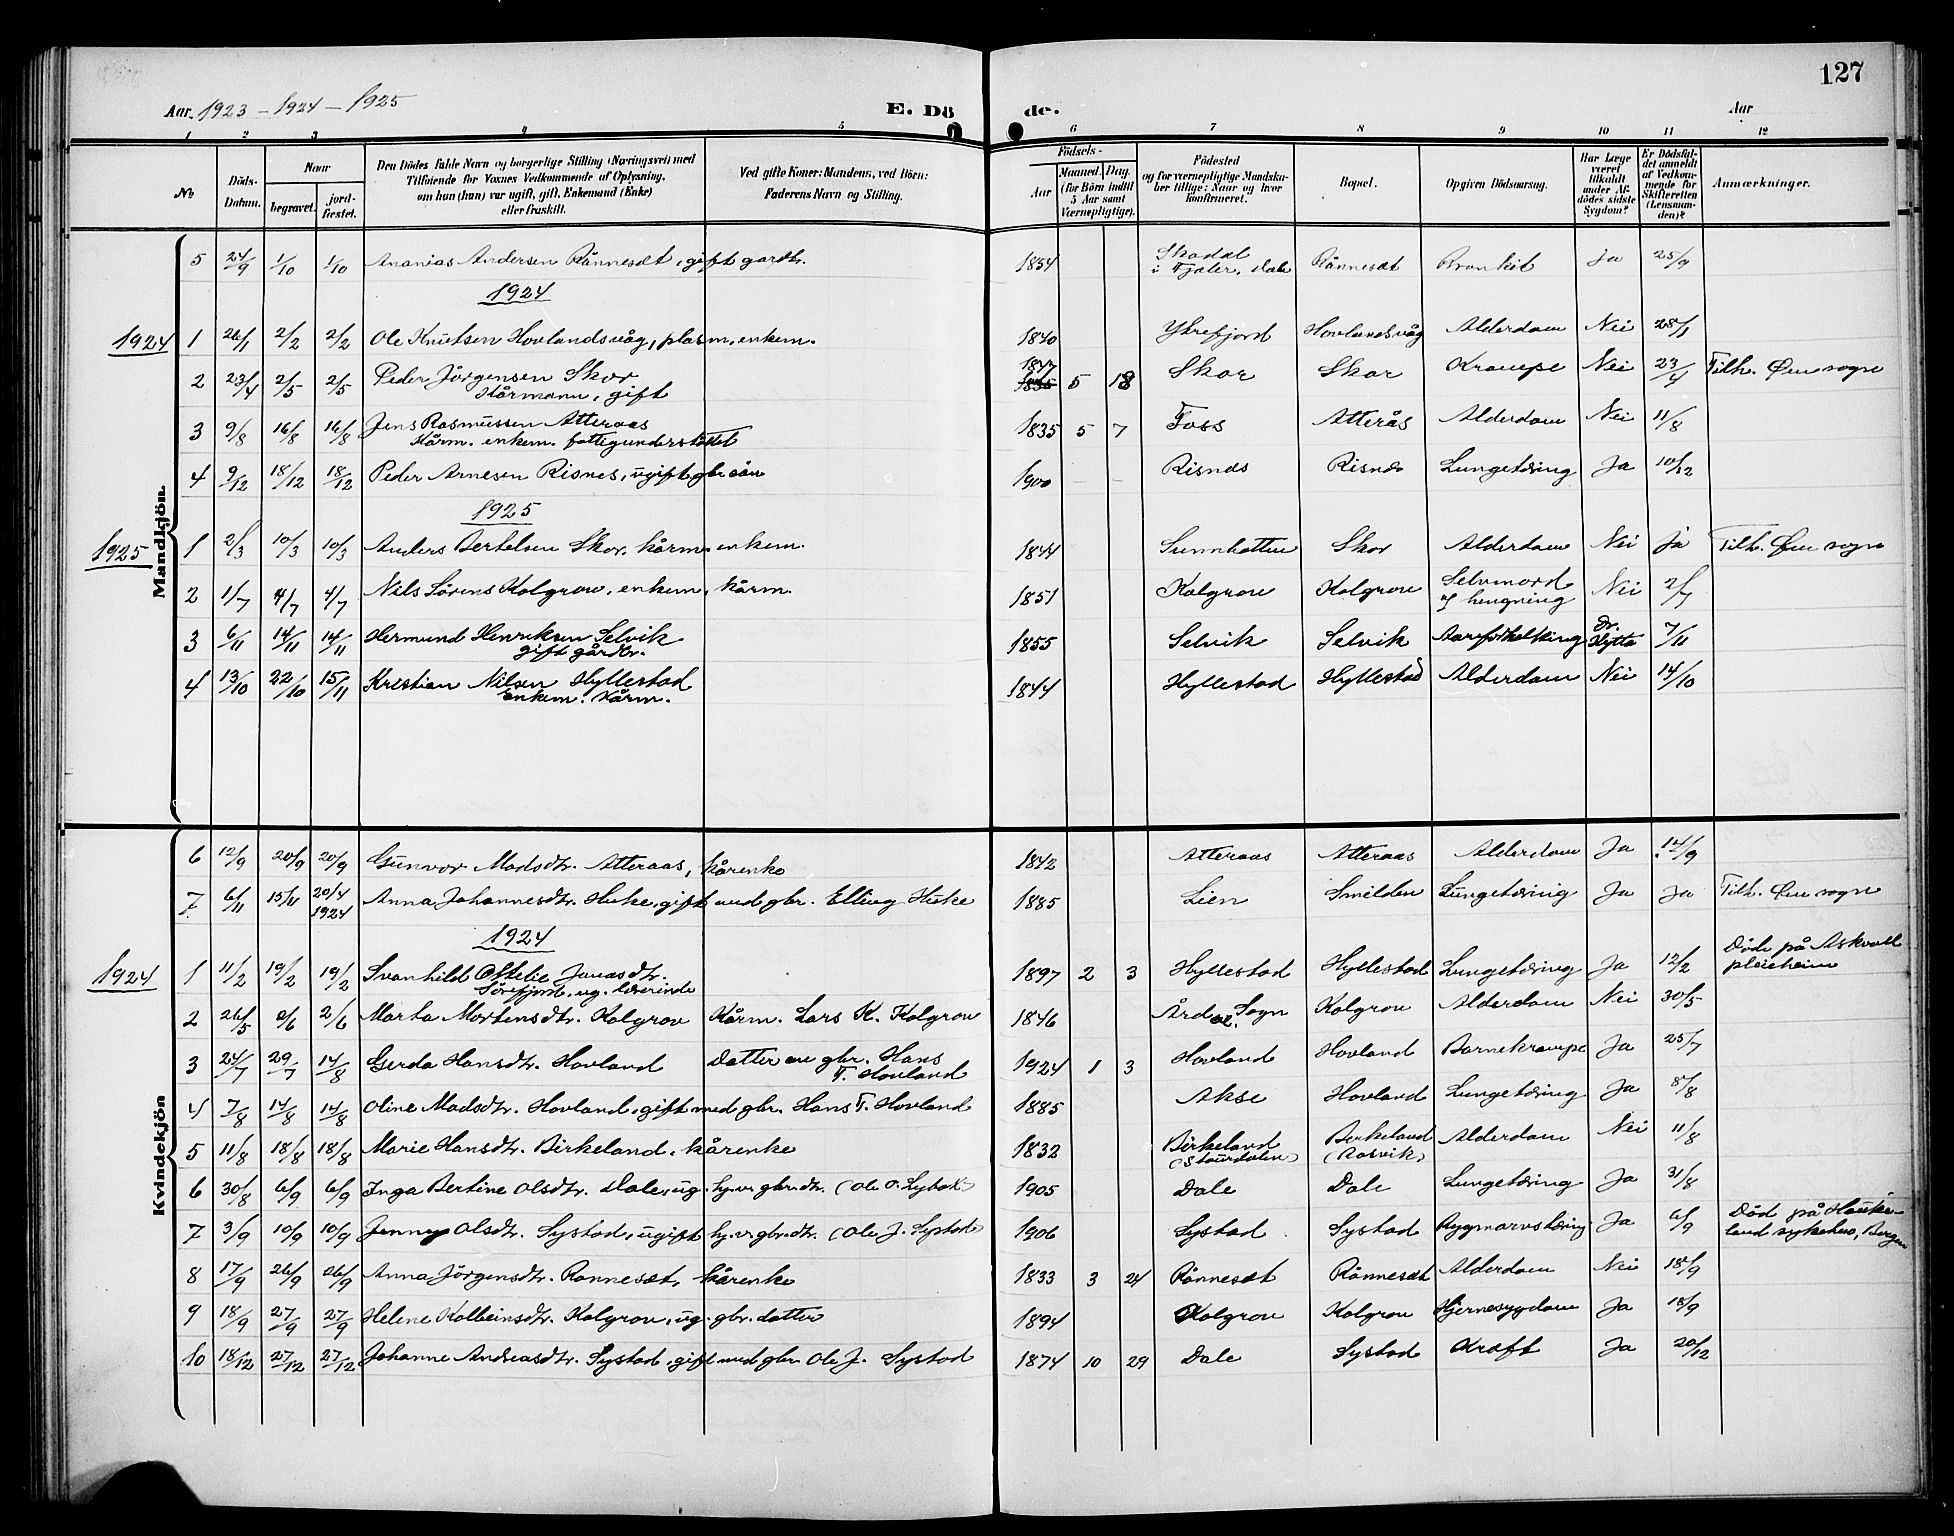 127
Aar. 1923 - 1924 - 1925 E. Dö de. Aar
1 2 3 4 5 6 7 8 9 10 11 12
No. Döds-Datum. Naar begravet. jordfæstet. Den Dödes fulde Navn og borgerlige Stilling (Næringsvei) med Tilföiende for Voxnes Vedkommende af Oplysning, om han (hun) var ugift, gift, Enkemand (Enke) eller fraskilt. Ved gifte Koner: Mandens, ved Börn: Faderens Navn og Stilling. Födsels- Aar Maaned. Dag. (for Börn indtil 5 Aar samt Værnepligtige). Födested og for værnepligtige Mandskaber tillige: Naar og hvor konfirmeret. Bopæl. Opgiven Dödsaarsag. Har Læge været tilkaldt under Afdödes sidste Sygdom? Er Dödsfaldet anmeldt af Vedkommende for Skifteretten (Lensmanden)? Anmærkninger.
Mandkjön.
5 24/9 1/10 1/10 Ananias Andersen Rånnesæt, gift gardbr. 1854 Skadal i Fjaler, Dale Rånnesæt Bronkit ja 25/9
1924
1924 1 26/1 2/2 2/2 Ole Knutsen Hovlandsvåg, plasm. enkem. 1840 Ytrefjord Hovlandsvåg Alderdom Nei 28/1
2 23/4 2/5 2/5 Peder Jörgensen Skor Kårmann, gift 1847 1835 5 18 Skor Skor Krampe Nei 23/4 Tilh. Öen sogn
3 9/8 16/8 16/8 Jens Rasmussen Atteraas Kårm. enkem. fattigunderstöttet 1835 5 7 Foss Atterås Alderdom Nei 11/8
4 9/12 18/12 18/12 Peder Arnesen Risnes, ugift gbr sön 1900 - - Risnes Risnes Lungetæring Ja 10/12
1925
1925 1 2/3 10/3 10/3 Anders Bertelsen Skor, kårm. enkem. 1844 Skor Alderdom Nei ja Tilh. Öen sogn
2 1/7 4/7 4/7 Nils Sörens Kolgrov, enkem, kårm. 1851 Kolgrov Kolgrov Selvmord v/ hengning Nei 2/7
3 6/11 14/11 14/11 Hermund Henriksen Selvik gift gårdbr. 1855 Selvik Selvik Aareforkalkning Dr. 7/11
4 13/10 22/10 15/11 Kristian Nilsen Hyllestad enkem. Kårm. 1844 Hyllestad Hyllestad Alderdom Nei 14/10
Kvindekjön
6 12/9 20/9 20/9 Gunvor Madsdtr. Atteraas, kårenke 1842 Atteraas Atteraas Alderdom Ja 14/9
7 6/11 15/11 20/4 1924 Anna Johannesdtr. Huke, gift med gbr. Elling Huke 1885 Lien Smilden Lungetæring Ja Ja Tilh. Öen sogn
1924
1924 1 11/2 19/2 19/2 Svanhild Ottelie Jonasdtr. Sörefjord, ug. lærerinde 1897 2 3 Hyllestad Hyllestad Lungetæring Ja 12/2 Döde på Askvoll pleieheim
2 26/5 2/6 2/6 Marta Mortensdtr. Kolgrov Kårm. Lars K. Kolgrov 1846 Årdal. Sogn Kolgrov Alderdom Nei 30/5
3 24/7 29/7 14/8 Gerda Hansdtr. Hovland Datter av gbr. Hans T. Hovland 1924 1 3 Hovland Hovland Barnekrampe Ja 25/7
4 7/8 14/8 14/8 Oline Madsdtr. Hovland, gift med gbr. Hans T. Hovland 1885 Akse Hovland Lungetæring Ja 8/8
5 11/8 18/8 18/8 Marie Hansdtr. Birkeland, kårenke 1832 Birkeland (Staurdalen) Birkeland (Rasvik) Alderdom Nei 11/8
6 30/8 6/9 6/9 Inga Bertine Olsdtr. Dale, ug. hj.v. gbr. dtr. (Ole O. 1905 Dale Dale Lungetæring Ja 31/8
7 3/9 10/9 10/9 Jenny Olsdtr. Systad, ugift hj.v. gbr. dtr. (Ole J. Systad 1906 Systad Systad Rygmarvstæring Ja 6/9 Död på Haukeland sykehus, Bergen
8 17/9 26/9 26/9 Anna Jörgensdtr. Rånnesæt, kårenke 1833 3 24 Rånnesæt Rånnesæt Alderdom Nei 18/9
9 18/9 27/9 27/9 Helene Kolbeinsdtr. Kolgrov, ug. gbr. datter 1894 Kolgrov Kolgrov Hjernesygdom Ja 18/9
10 18/12 27/12 27/12 Johanne Andreasdtr. Systad, gift med gbr. Ole J. Systad 1874 10 29 Dale Systad Kræft Ja 20/12